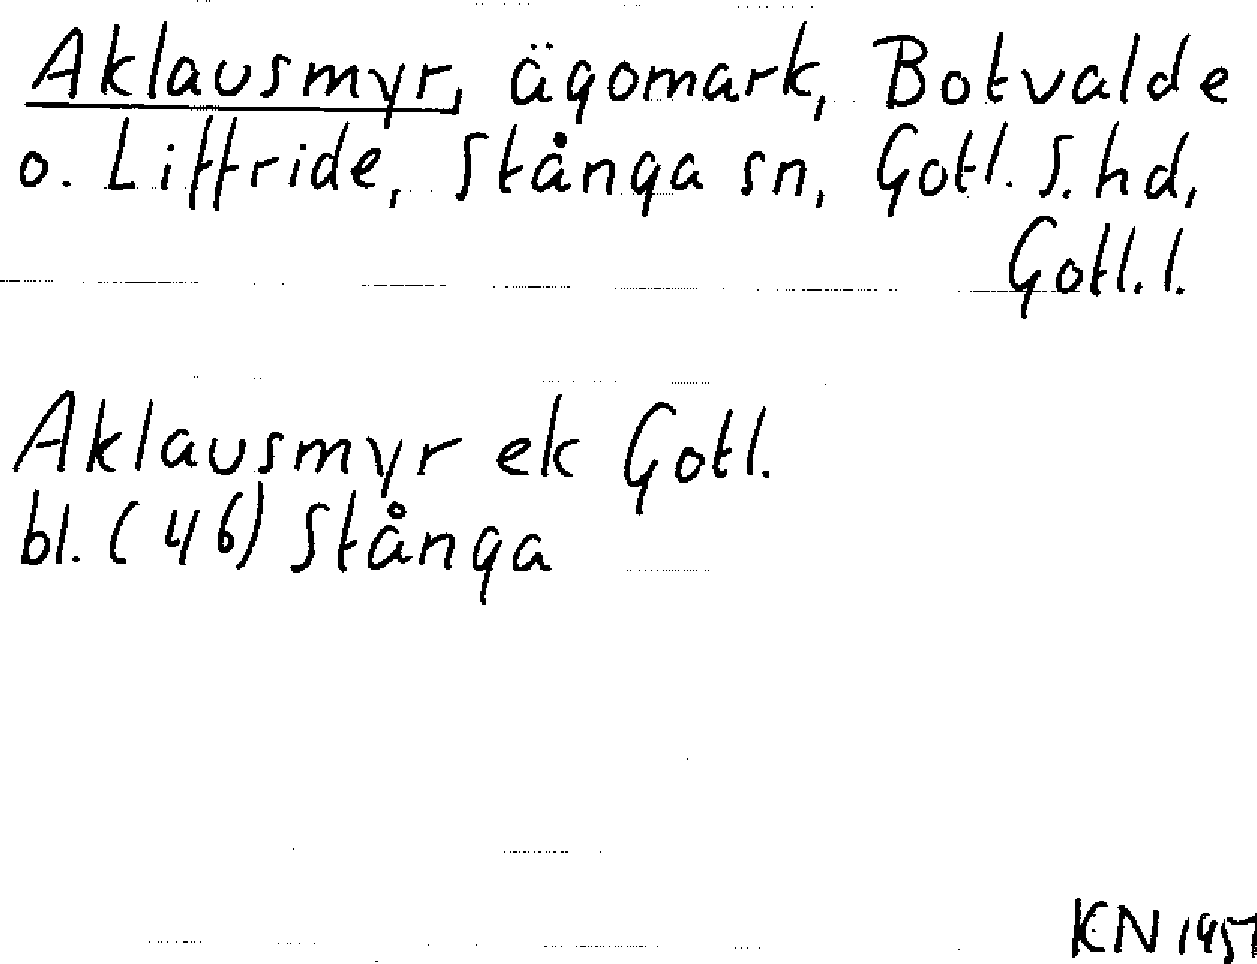 Aklausmyr, ägomark, Botvalde
o. Liffride, Stånga sn, Gotl. S. hd,
Gotl. l.
Aklausmyr ek Gotl.
bl. (46) Stånga
KN 1951